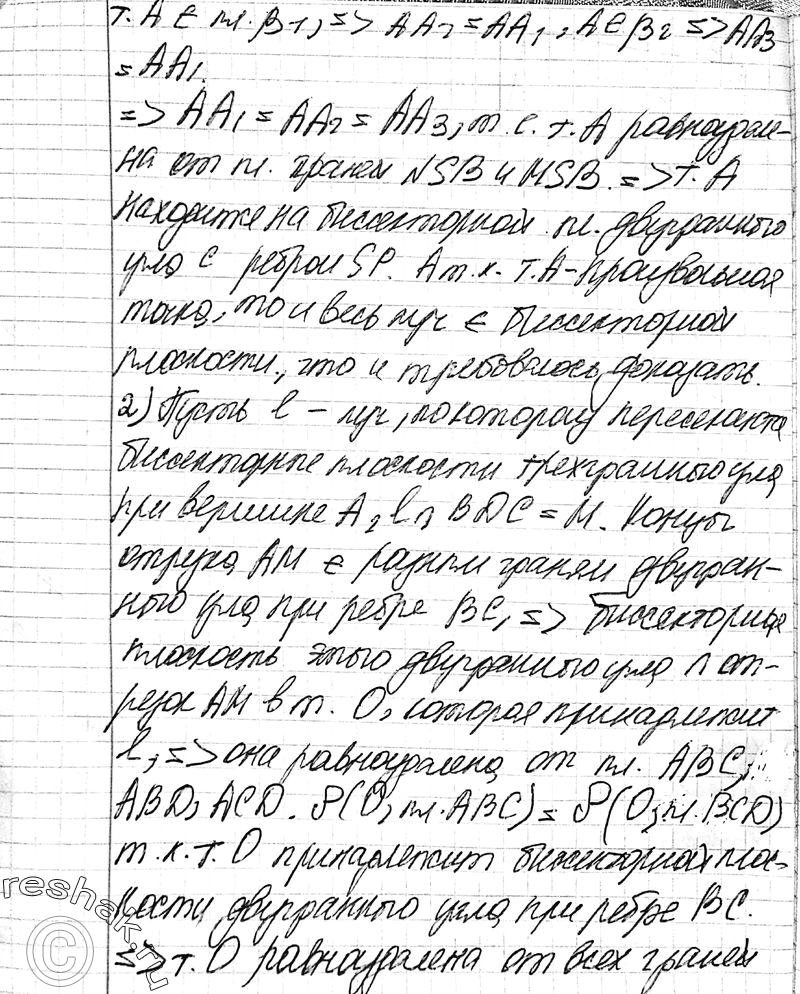 т. А ∈ пл. β1, => АА2 = АА1, А ∈ β2 => АА3
= АА1.
=> АА1 = АА2 = АА3, т. е. т. А равноудале-
на от пл. граней NSB и MSB. => т. А
находится на биссекторной пл. двугранного
угла с ребром SP. А т. к. т. А - произвольная
точка, то и весь луч ∈ биссекторной
плоскости, что и требовалось доказать.
2) Пусть l - луч, по которому пересекаются
биссекторные плоскости трехгранного угла
при вершине А, l ∩ BDC = M. Концы
отрезка АМ ∈ разным граням двугран-
ного угла при ребре BC, => биссекторная
плоскость этого двугранного угла ∩ от-
резок АМ в т. О, которая принадлежит
l, => она равноудалена от пл. ABC,
ABD, ACD. ρ(O, пл. ABC) = ρ(O, пл. BCD)
т. к. т. О принадлежит биссекторной плос-
кости двугранного угла при ребре BC.
=> т. О равноудалена от всех граней
reshak.ru
©